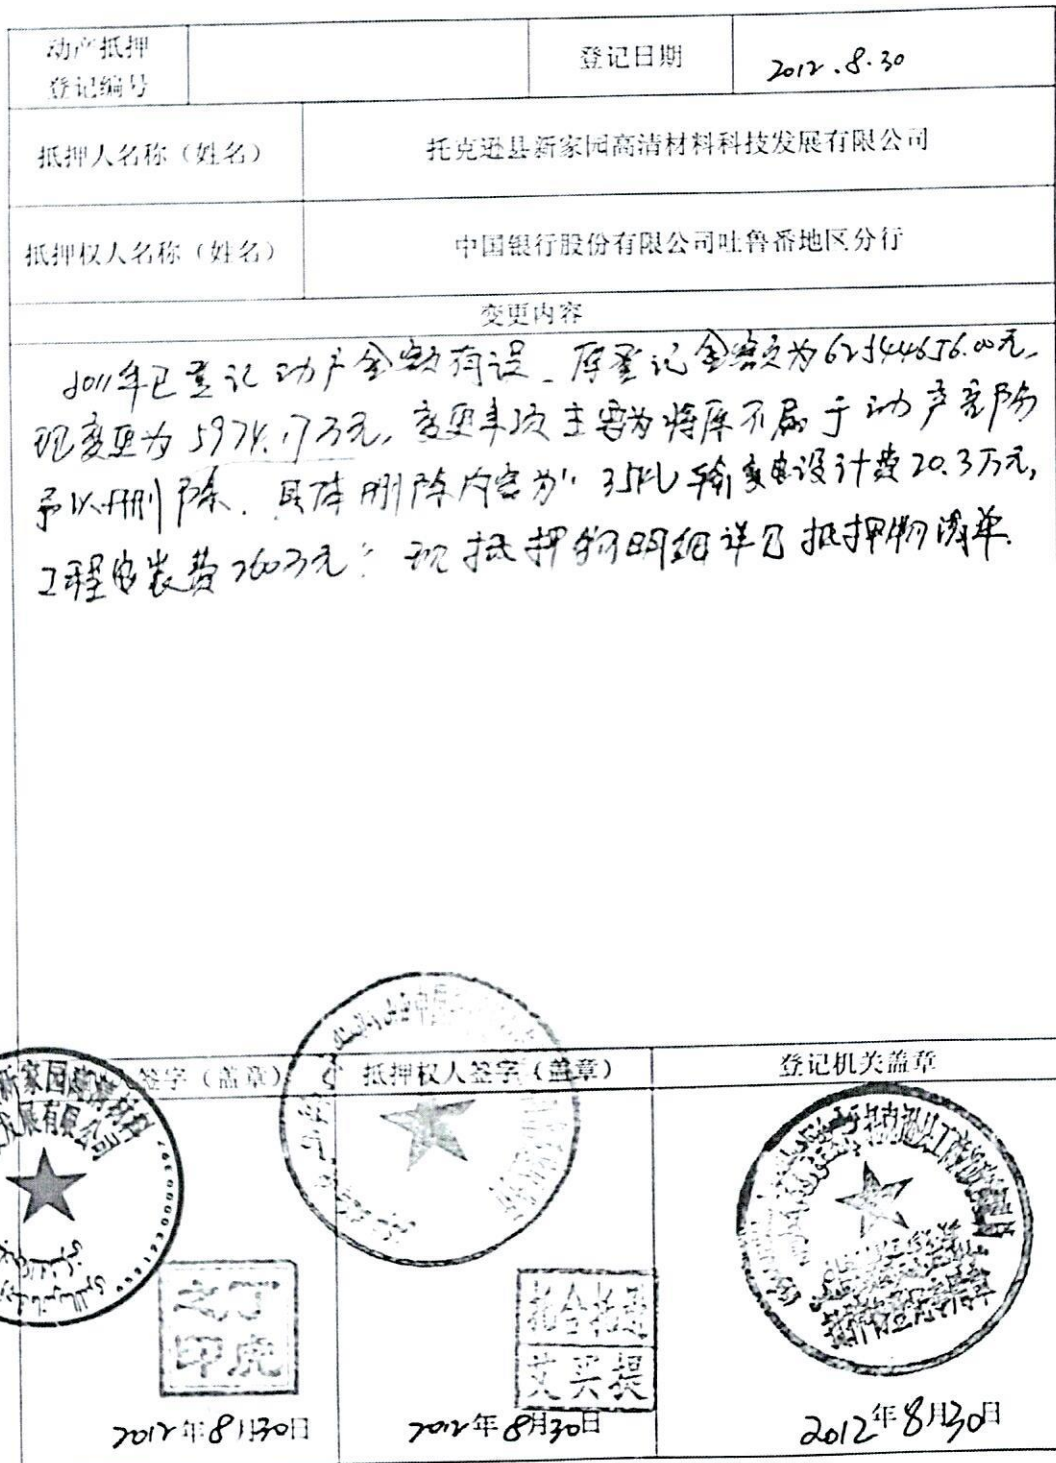 动产抵押
登记编号
登记日期
2012.8.30
抵押人名称（姓名）
托克逊县新家园高清材料科技发展有限公司
抵押权人名称（姓名）
中国银行股份有限公司吐鲁番地区分行
变更内容
2011年已登记动产金额有误、原登记金额为62544656.00元,
现变更为5974.17万元, 变更事项主要为将原不属于动产部分
予以删除. 具体删除内容为: 35KV输变电设计费20.3万元,
工程安装费260万元; 现抵押物明细详见抵押物清单.
签字（盖章）
抵押权人签字（盖章）
登记机关盖章
新家园
发展有限公司
丁虎
之印
艾买提
2012年8月30日
2012年8月30日
2012年8月30日